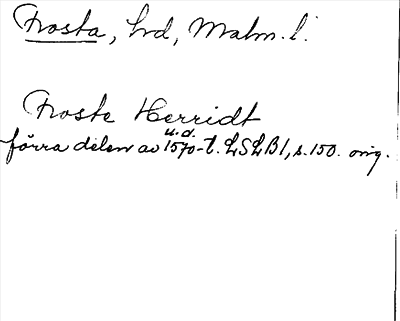 Frosta, hrd, Malm. l.
Froste Herridt
u. d.
förra delen av 1570-t. LSLB1, s. 150. orig.